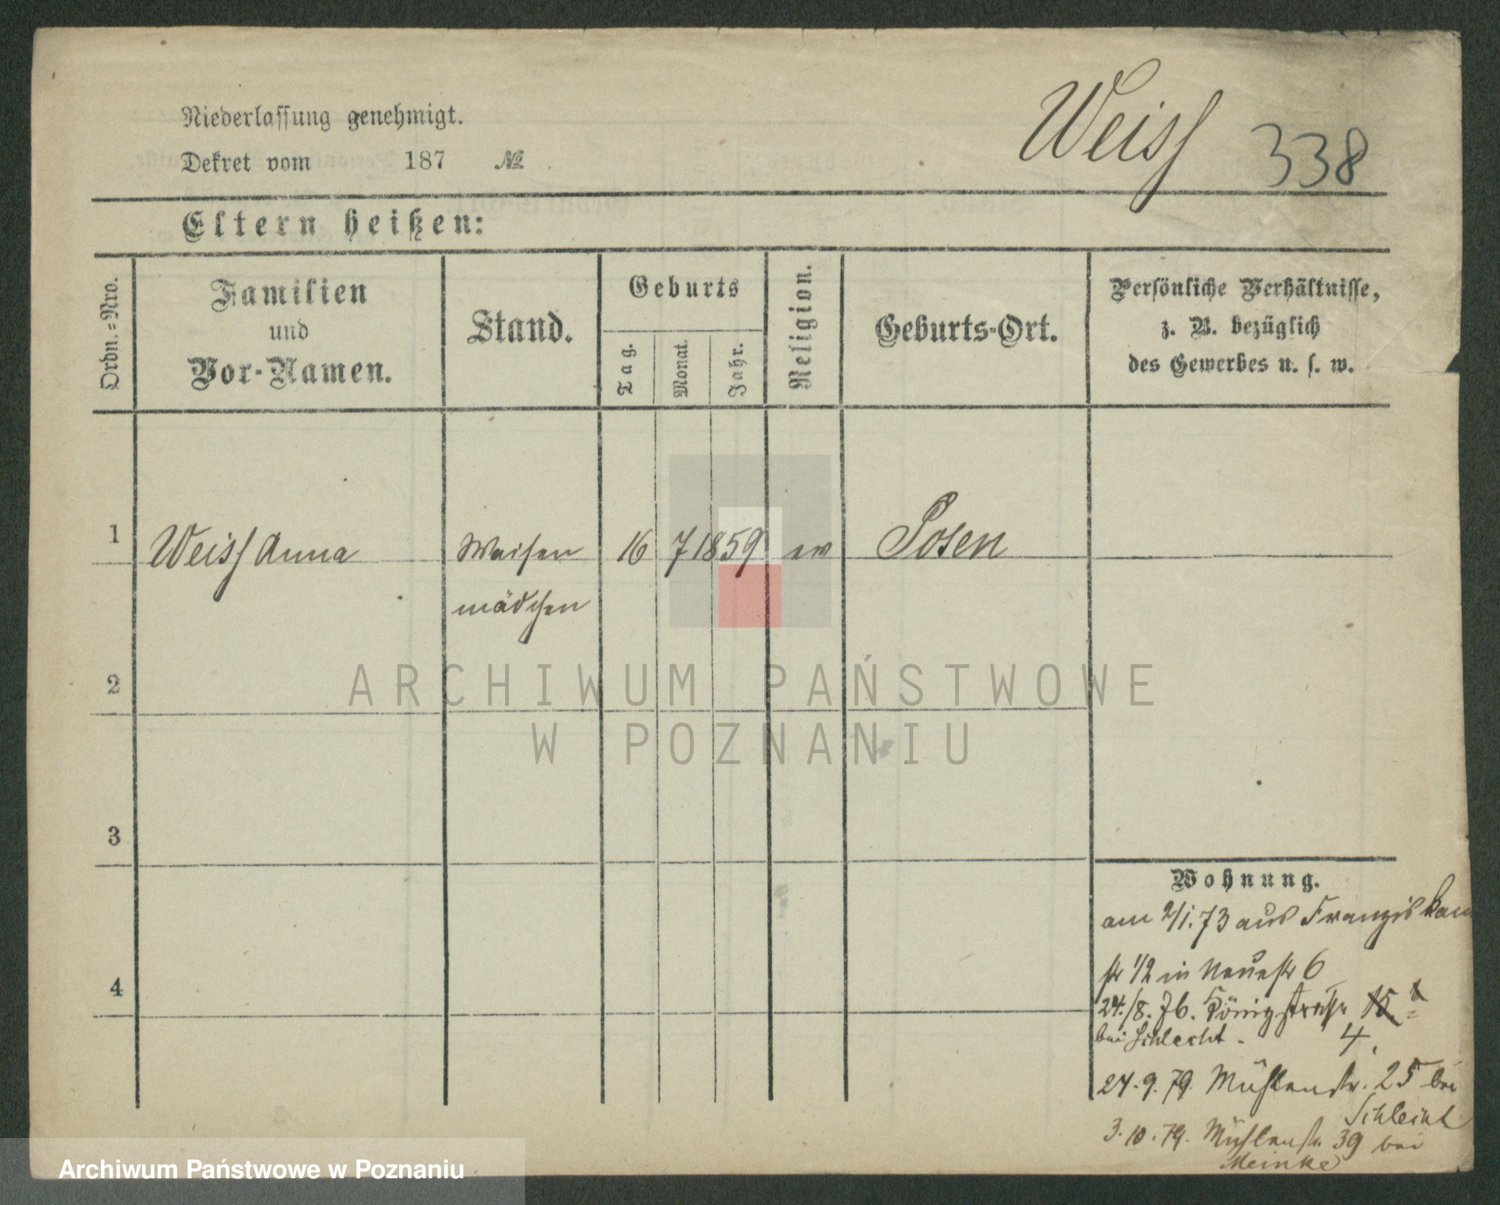 Niederlassung genehmigt.
Dekret vom 187 №
Weiss 338
Eltern heißen:
Ordn.=Nro.
Familien
und
Vor-Namen.
Stand.
Geburts
Tag.
Monat.
Jahr.
Religion.
Geburts-Ort.
Persönliche Verhältnisse,
z. B. bezüglich
des Gewerbes u. s. w.
1 Weiss Anna Waisen 16 7 1859 ev Posen
mädchen
2
3
4
Wohnung.
am 2/1.73 aus Franziskan
str 1/2 in Neuestr 6
24./8.76. Königstrasse 15
bei Schlecht. 4.
27.9.79. Mühlenstr. 25 bei
Schlecht
3.10.79. Mühlenstr 39 bei
Meinke
ARCHIWUM PAŃSTWOWE
W POZNANIU
Archiwum Państwowe w Poznaniu